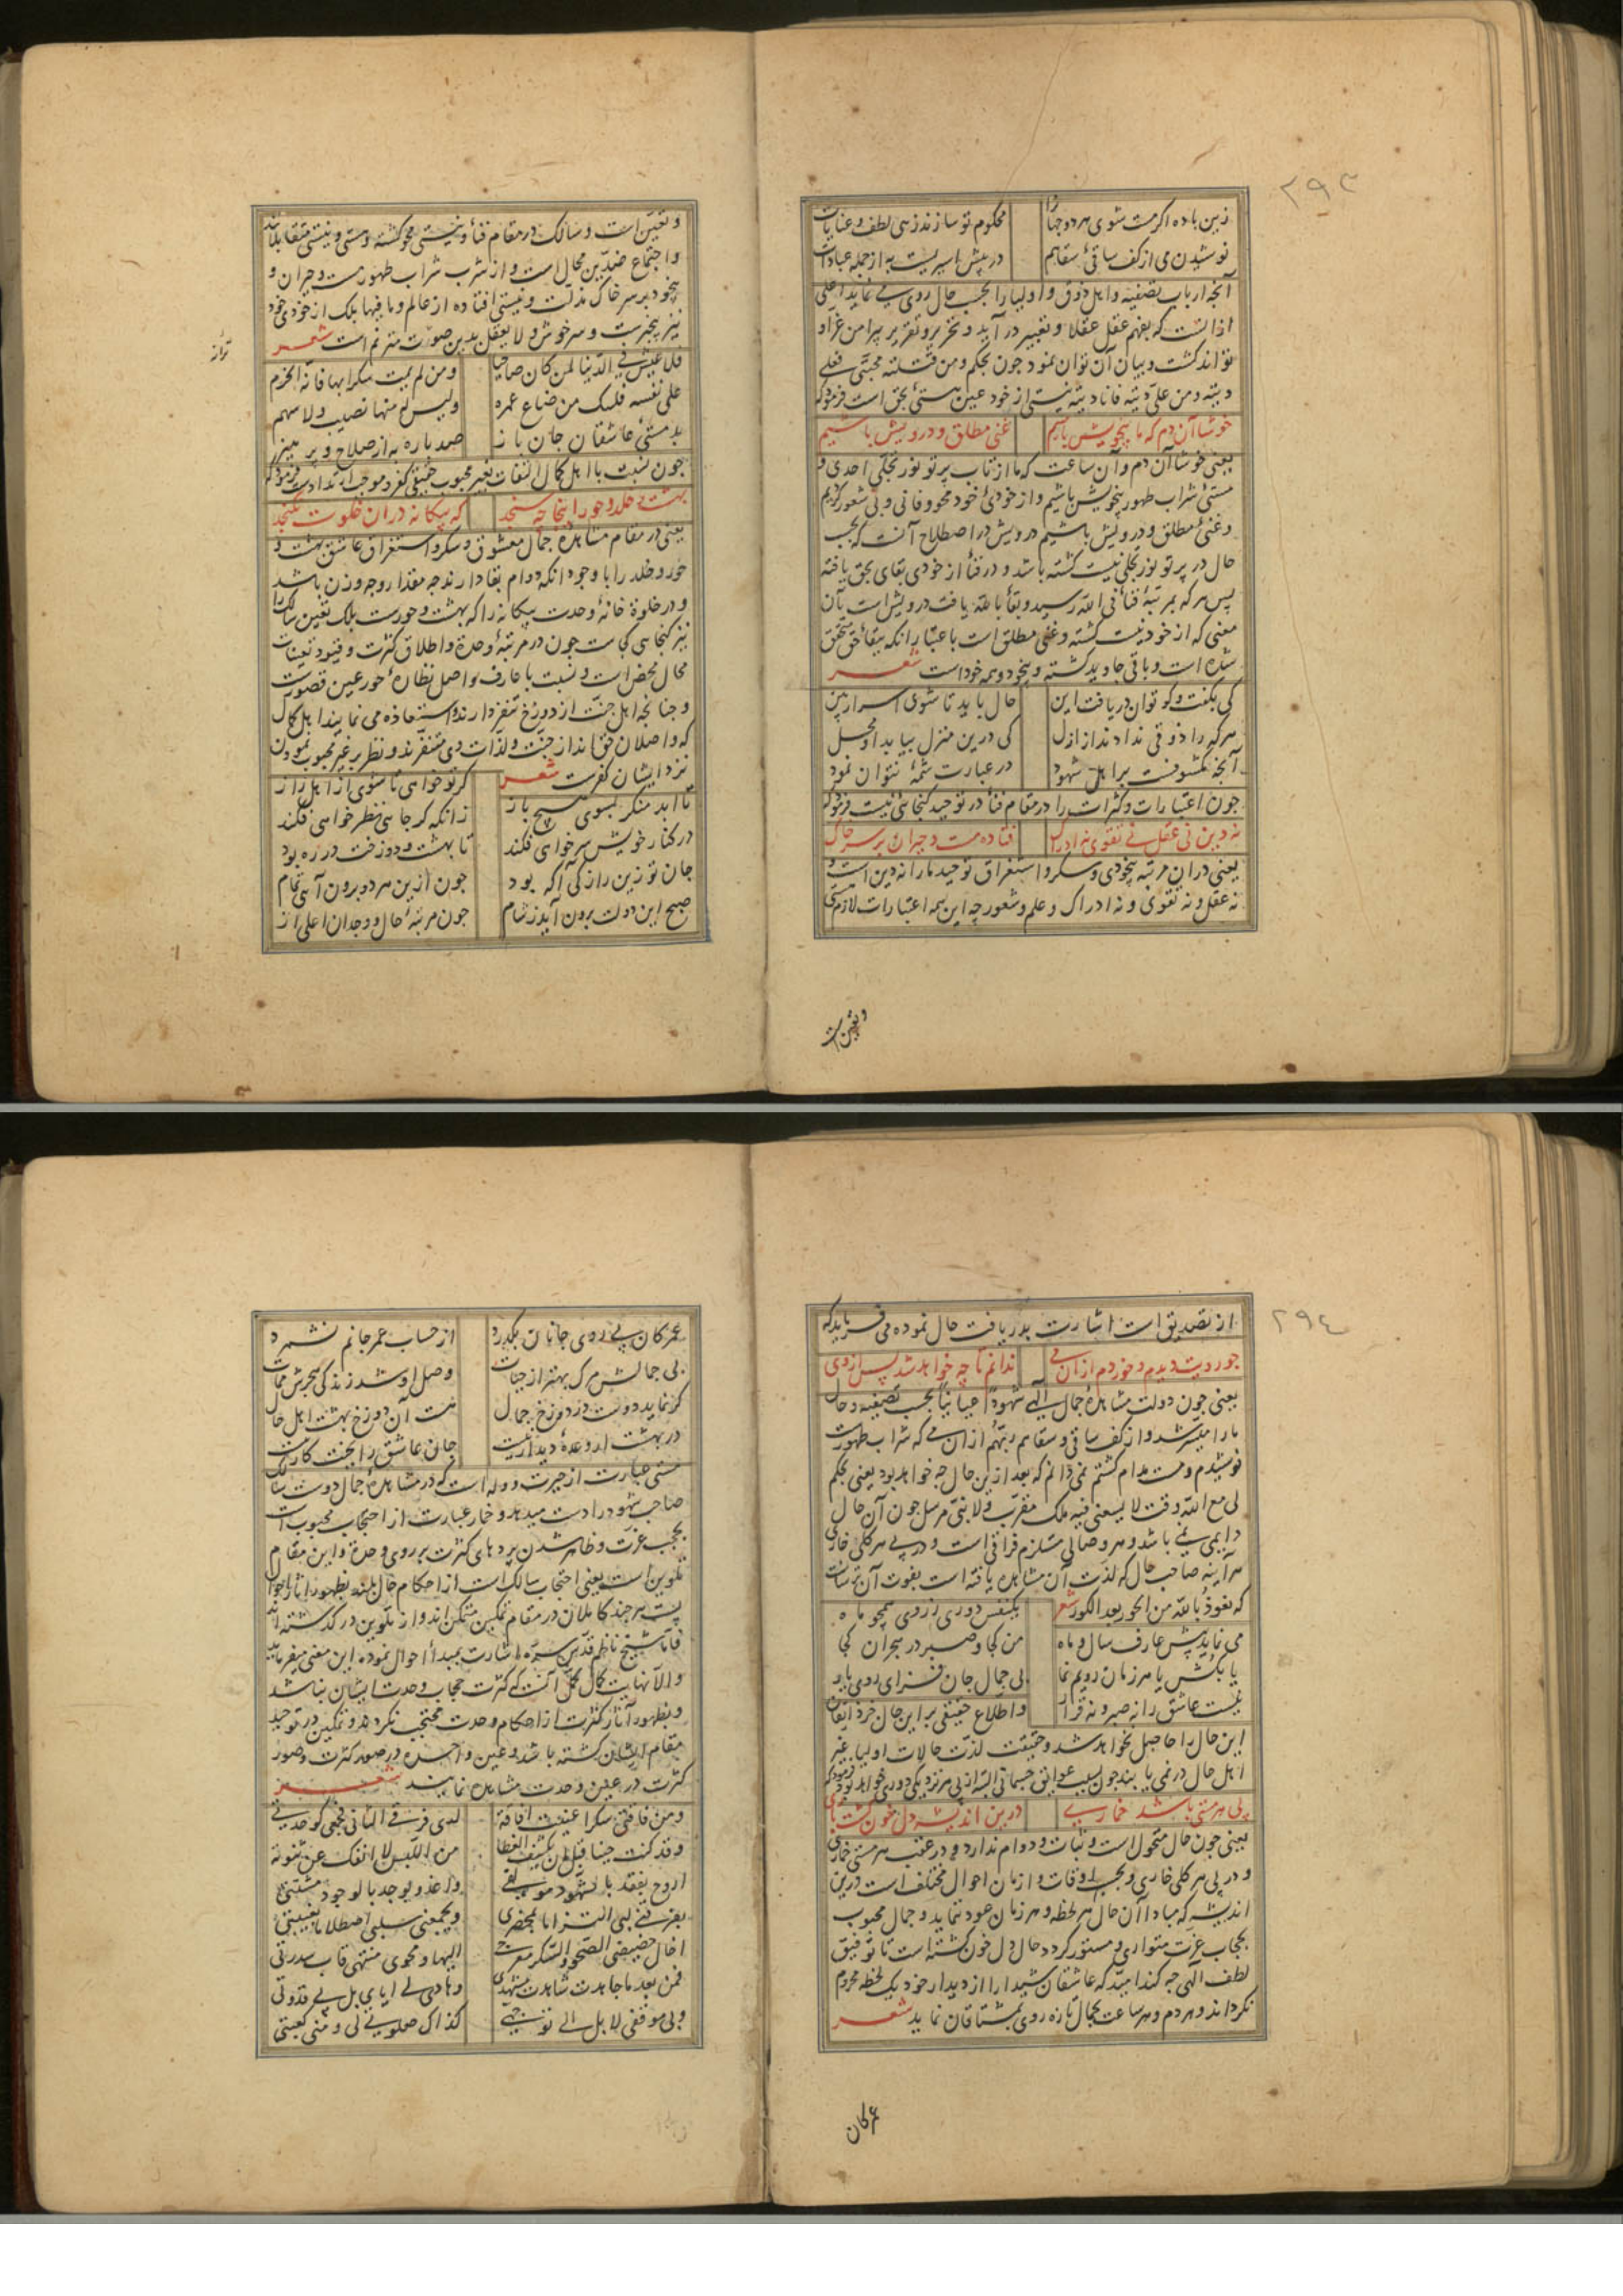 ٢٩٣
زین باده اگر مست شوی هر دو جهانرا محکوم تو سازند زهی لطف و عنایات
نوشیدن می از کف ساقی سقاهم در پیش اسیریست به از جمله عبادات
آنچه ارباب تصفیه و اهل ذوق و اولیا را بحسب حال روی می نماید اعلی
از آنست که بفهم عقل عقلا و تعبیر درآید و تحریر و تقریر پیرامن غراو
تواند گشت و بیان آن توان نمود چون بحکم و من قتلته محبتی فعلی
دیته و من علی دیته فانا دیته نیستی از خود عین هستی بحق است فرمود که
خوشا آن دم که ما بیخویش باشیم غنی مطلق و درویش باشیم
یعنی خوشا آن دم و آن ساعت که ما از تاب پرتو نور تجلی احدی و
مستی شراب طهور بیخویش باشیم و از خودی خود محو و فانی و بی شعور گردیم
و غنی مطلق و درویش باشیم درویش در اصطلاح آنست که بحسب
حال در پرتو نور تجلی نیست گشته باشد و در فنا از خودی بقای بحق یافته
پس هر که بمرتبه فنا فی الله رسید و بقا بالله یافت درویش است بآن
معنی که از خود نیست گشته و غنی مطلق است باعتبار آنکه ببقا حق متحقق
شده است و باقی جاوید گشته و بیخود و همه خود است شعر
کی بگفت و گو توان دریافت این حال باید تا شوی اسرار بین
هر که را ذوقی ندادند از ازل کی درین منزل بیابد او محل
آنچه مکشوفست بر اهل شهود در عبارت شمهٔ نتوان نمود
چون اعتبارات و کثرات را در مقام فنا در توحید گنجائی نیست فرمود که
نه دین نی عقل نی تقوی نه ادراک فتاده مست و حیران بر سر خاک
یعنی در آن مرتبه بیخودی و سکر و استغراق توحید ما را نه دین است و
نه عقل و نه تقوی و نه ادراک و علم و شعور چه این همه اعتبارات لازم هستی
و تعین است
و تعین است و سالک در مقام فنا و نیستی محو گشته و هستی و نیستی متقابلانند
و اجتماع ضدین محال است و از شرب شراب طهور مست و حیران و
بیخود بر سر خاک مذلت و نیستی افتاده از عالم و ما فیها بلک از خودی خود
نیز بیخبرست و سرخوش و لا یعقل بدین صوت مترنم است شعر
فلا عیش فی الدنیا لمن کان صاحیا و من لم یمت سکرا بها فاته الحزم
علی نفسه فلیبک من ضاع عمره و لیس له منها نصیب و لا سهم
بد مستی عاشقان جان باز صد باره به از صلاح و پرهیز
چون نسبت با اهل کمال التفات بغیر محبوب حقیقی کفر و موجب ارتدادست فرمود که
بهشت و خلد و حور اینجا چه سنجد که بیگانه در آن خلوت نگنجد
یعنی در مقام مشاهدهٔ جمال معشوق و سکر و استغراق عاشق بهشت و
حور و خلد را با وجود آنکه دوام بقا دارند چه مقدار و چه وزن باشد
و در خلوة خانهٔ وحدت بیگانه را که بهشت و حورست بلک تعین سالک را
نیز گنجایی کی است چون در مرتبهٔ وحدة و اطلاق کثرت و قیود تعینات
محال محض است و نسبت با عارف واصل نظارهٔ حور عین قصورست
و چنانچه اهل جنت از دوزخ تنفر دارند و استعاذه می نمایند اهل کمال
که واصلان حق اند از جنت و لذات وی متنفرند و نظر بر غیر محبوب نمودن
نزد ایشان کفرست شعر گر تو خواهی تا شوی از اهل راز
تا ابد منگر بسوی هیچ باز زانکه گر جایی نظر خواهی فکند
در کنار خویش سر خواهی فکند تا بهشت و دوزخت در ره بود
جان تو زین راز کی آگه بود چون ازین هر دو برون آیی تمام
صبح این دولت برون آید ز شام چون مرتبهٔ حال و وجدان اعلی از
٢٩٤
از تصدیق است اشارت بدریافت حال نموده می فرماید که
چو رویت دیدم و خوردم از آن می ندانم تا چه خواهد شد پس از وی
یعنی چون دولت مشاهدهٔ جمال الهی شهودا عیانیا بحسب تصفیه و حال
ما را میسر شد و از کف ساقی و سقاهم ربهم از آن می که شراب طهورست
نوشیدم و مست مدام گشتم نمی دانم که بعد ازین حال چه خواهد بود یعنی بحکم
لی مع الله وقت لا یسعنی فیه ملک مقرب و لا نبی مرسل چون آن حال
دایمی نمی باشد و هر وصالی مستلزم فراقی است و در پی هر گلی خاری
هر آینه صاحب حال که لذت آن مشاهده یافته است بفوت آن ترسانست
که نعوذ بالله من الحور بعد الکور شعر یکنفس دوری ز روی همچو ماه
می نماید پیش عارف سال و ماه من کجا و صبر در هجران کجا
یا بکش یا هر زمان رویم نما بی جمال جان فزای روی یار
نیست عاشق را نه صبر و نه قرار و اطلاع حقیقی بر این حال جز ذایقان
این حال را حاصل نخواهد شد و حقیقت لذت حالات اولیا غیر
اهل حال درنمی یابند چون بسبب عوایق جسمانی البته از پی هر نزدیکی دوری خواهد بود فرمود که
پی هر مستی باشد خماری درین اندیشه دل خون گشت باری
یعنی چون حال متحول است و ثبات و دوام ندارد و در عقب هر مستی خماری
و در پی هر گلی خاری و بحسب اوقات و ازمان احوال مختلف است درین
اندیشه که مبادا آن حال هر لحظه و هر زمان عود ننماید و جمال محبوب
بحجاب عزت متواری و مستور گردد حال دل خون گشته است تا توفیق
لطف الهی چه کند امید که عاشقان شیدا را از دیدار خود یک لحظه محروم
نگرداند و هر دم و هر ساعت بجمال تازه روی بمشتاقان نماید شعر
عمر کان
عمر کان بی روی جانان بگذرد از حساب عمر جانم نشمرد
بی جمالش مرگ بهتر از حیات وصل او شد زندگی هجرش ممات
گر نماید دوست در دوزخ جمال هست آن دوزخ بهشت اهل حال
در بهشت ار وعدهٔ دیدار نیست جان عاشق را بجنت کار نیست
مستی عبارت از حیرت و وله است که در مشاهدهٔ جمال دوست سالک
صاحب شهود را دست میدهد و خمار عبارت از احتجاب محبوب است
بحجب عزت و ظاهر شدن پردهای کثرت بر روی وحدة و این مقام
تلوین است یعنی احتجاب سالک است از احکام حال بلند بظهور آثار احوال
پست هر چند کاملان در مقام تمکین متمکن اند و از تلوین در گذشته اند
فاما شیخ ناظم قدس سره اشارت بمبدأ احوال نموده این معنی میفرماید
و الا نهایت کمال کمل آنست که کثرت حجاب وحدت ایشان نباشد
و بظهور آثار کثرت از احکام وحدت محتجب نگردند و تمکین در توحید
مقام ایشان گشته باشد و عین واحده در صور کثرت و صور
کثرت در عین وحدت مشاهده نمایند شعر
و من فاقتی سکرا غنیت افاقة لدی فرقی الثانی فجمعی کوحدتی
و قد کنت حینا قبل ان یکشف الغطا من اللبس لا انفک عن ثنویة
اروح بفقد بالشهود مؤلفی و اغدو بوجد بالوجود مشتتی
یفرقنی لبی التزاما بمحضری و یجمعنی سلبی اصطلاما بغیبتی
اخال حضیضی الصحو و السکر معرجی الیها و محوی منتهی قاب سدرتی
فمن بعد ما جاهدت شاهدت مشهدی و هادی لی ایای بل بی قدوتی
و بی موقفی لا بل الی توجهی کذاک صلوتی لی و منی کعبتی